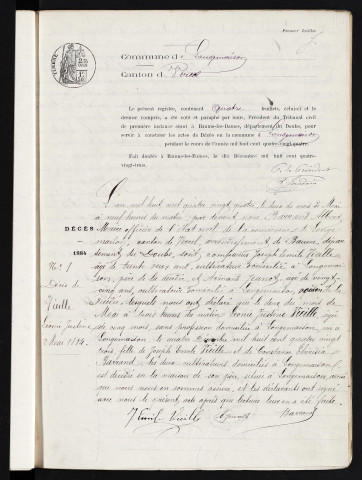 Premier feuillet
Commune de Longemaison
Canton de Vercel
Le présent registre, contenant quatre feuillets, celui-ci et le
dernier compris, a été coté et paraphé par nous, Président du Tribunal civil
de première instance séant à Baume-les-Dames, département du Doubs, pour
servir à constater les actes des Décès en la commune de Longemaison
pendant le cours de l'année mil huit cent quatre-vingt-quatre.
Fait double à Baume-les-Dames, le dix Décembre mil huit cent quatre-
vingt-trois.
Le Président
DÉCÈS
1884
N° 1
Décès de
Vieille
Léonie Justine
2 Mai 1884
L'an mil huit cent quatre vingt quatre, le deux du mois de Mai
à neuf heures du matin, par devant nous Barrand Albert
Maire officier de l'état civil de la commune de Longe-
maison, canton de Vercel, arrondissement de Baume, dépar-
tement du Doubs, sont comparus Joseph Emile Vieille
âgé de trente ans, cultivateur domicilié à Longemai-
son, père de la décédée, et
cinq ans, cultivateur domicilié à Longemaison, voisin de la
décédée, lesquels nous ont déclaré que le deux du mois de
Mai à trois heures du matin, Léonie Justine Vieille âgée
de cinq mois, sans profession domiciliée à Longemaison, née à
Longemaison, le mil huit cent quatre vingt
trois, fille de Joseph Emile Vieille et de Constance
Barrand, tous deux cultivateurs domiciliés à Longemaison,
est décédée en la maison de son père, située à Longemaison, ainsi
que nous nous en sommes assuré, et les déclarants ont signé
avec nous le présent acte après que lecture leur en a été faite.
J Emile Vieille Barrand